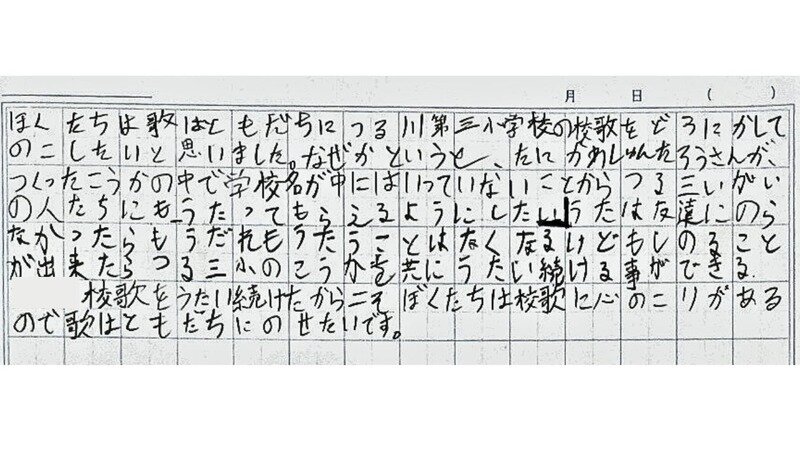 月　日　(　　　)
ぼくたちは歌はともだちにつる川第三小学校の校歌をどうにかして
のこしたいと思いました。なぜかというと、たにかわしゅんたろうさんが、
つくったこうかの中で学校名が中にはいっていないことからつる三いがい
の人たちにもうたってもらえるようにしたいうたは友達にのら
なかったらもうだれもうたうことはなくなるけどもしのること
が出来たらつる三小のこうかを共にうたい続ける事ができる
校歌をうたい続けたからこそぼくたちは校歌に心のこりがある
ので歌はともだちにのせたいです。